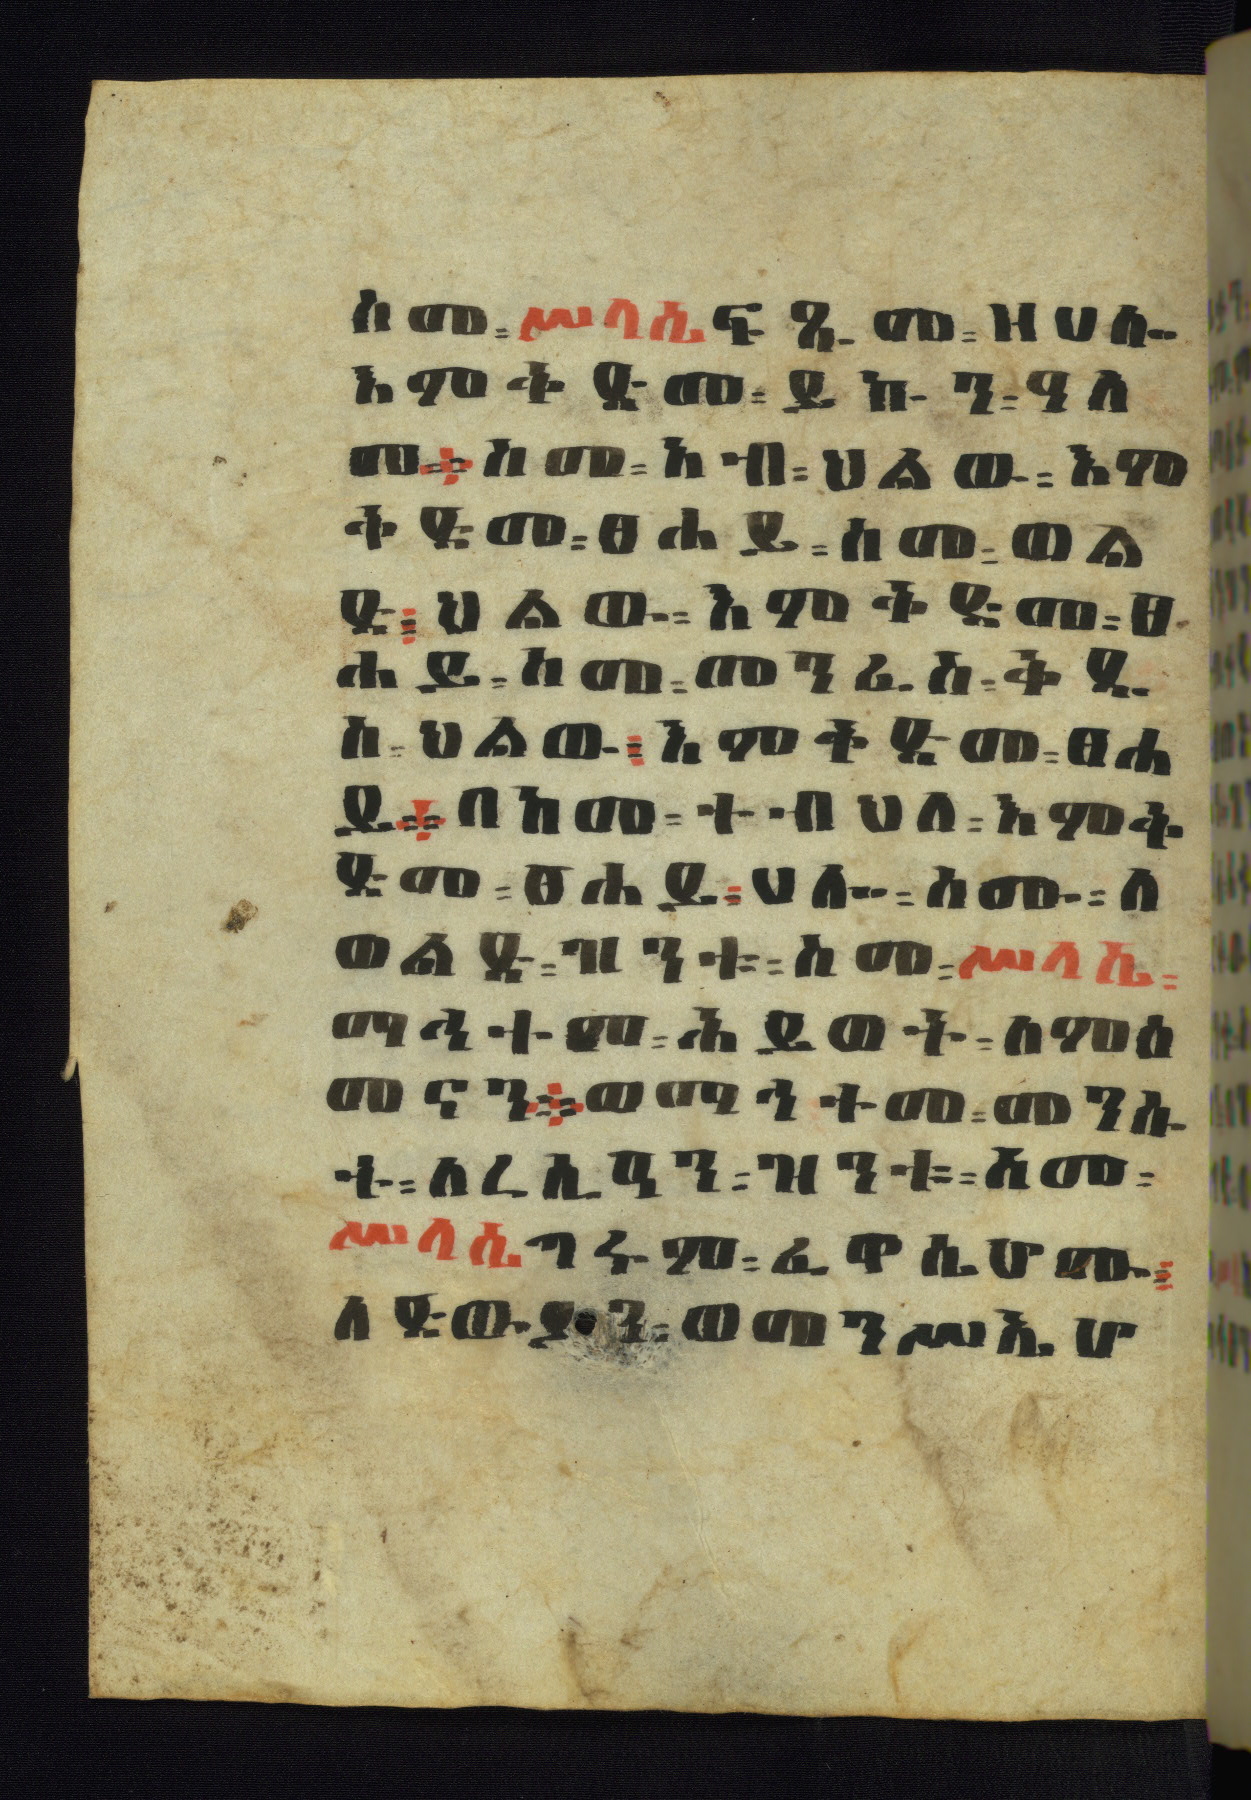 ስመ፡ ሥላሴ ፍጹም፡ ዘሀሎ
እምቅድመ፡ ይኩን፡ ዓለ
ም። ስመ፡ አብ፡ ህልው፡ እም
ቅድመ፡ ፀሐይ፡ ስመ፡ ወል
ድ፡ ህልው፡ እምቅድመ፡ ፀ
ሐይ፡ ስመ፡ መንፈስ፡ ቅዱ
ስ፡ ህልው፡ እምቅድመ፡ ፀሐ
ይ። በከመ፡ ተብህለ፡ እምቅ
ድመ፡ ፀሐይ፡ ሀሎ፡ ስሙ፡ ለ
ወልድ፡ ዝንቱ፡ ስመ፡ ሥላሴ፡
ማኅተመ፡ ሕይወት፡ ለምዕ
መናን። ወማኅተመ፡ መንሱ
ት፡ ለረሲዓን፡ ዝንቱ፡ ስመ፡
ሥላሴ ግሩም፡ ፈዋሲሆሙ፡
ለድውያን፡ ወመንሥኢሆ